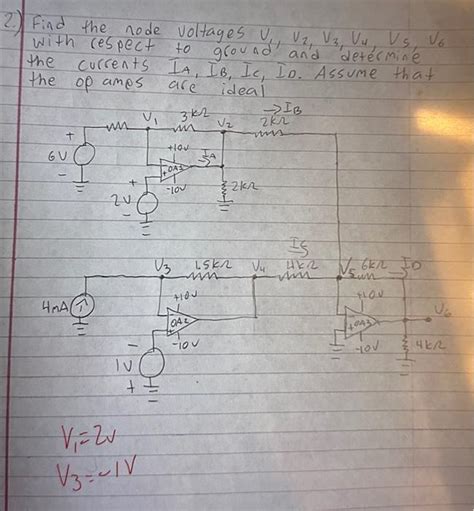 2.) Find the node voltages V1, V2, V3, V4, V5, V6
with respect to ground and determine
the currents IA, IB, IC, ID. Assume that
the op amps are ideal
→IB
V1 3kΩ V2 2kΩ
+ +10V IA
6V
- + OA1
+ -10V 2kΩ
2V
-
IC
V3 1.5kΩ V4 4kΩ V5 6kΩ ID
+10V +10V V6
4mA ↑
OA2 OA3
- -10V -10V 4kΩ
1V
+
V1=2V
V3=-1V